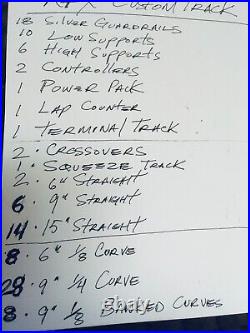 AFX CUSTOM TRACK
18 SILVER GUARDRAILS
10 LOW SUPPORTS
6 HIGH SUPPORTS
2 CONTROLLERS
1 POWER PACK
1 LAP COUNTER
1 TERMINAL TRACK
2. CROSSOVERS
1. SQUEEZE TRACK
2. 6" STRAIGHT
6. 9" STRAIGHT
14. 15" STRAIGHT
8. 6" 1/8 CURVE
28. 9" 1/4 CURVE
8. 9" 1/8 BANKED CURVES